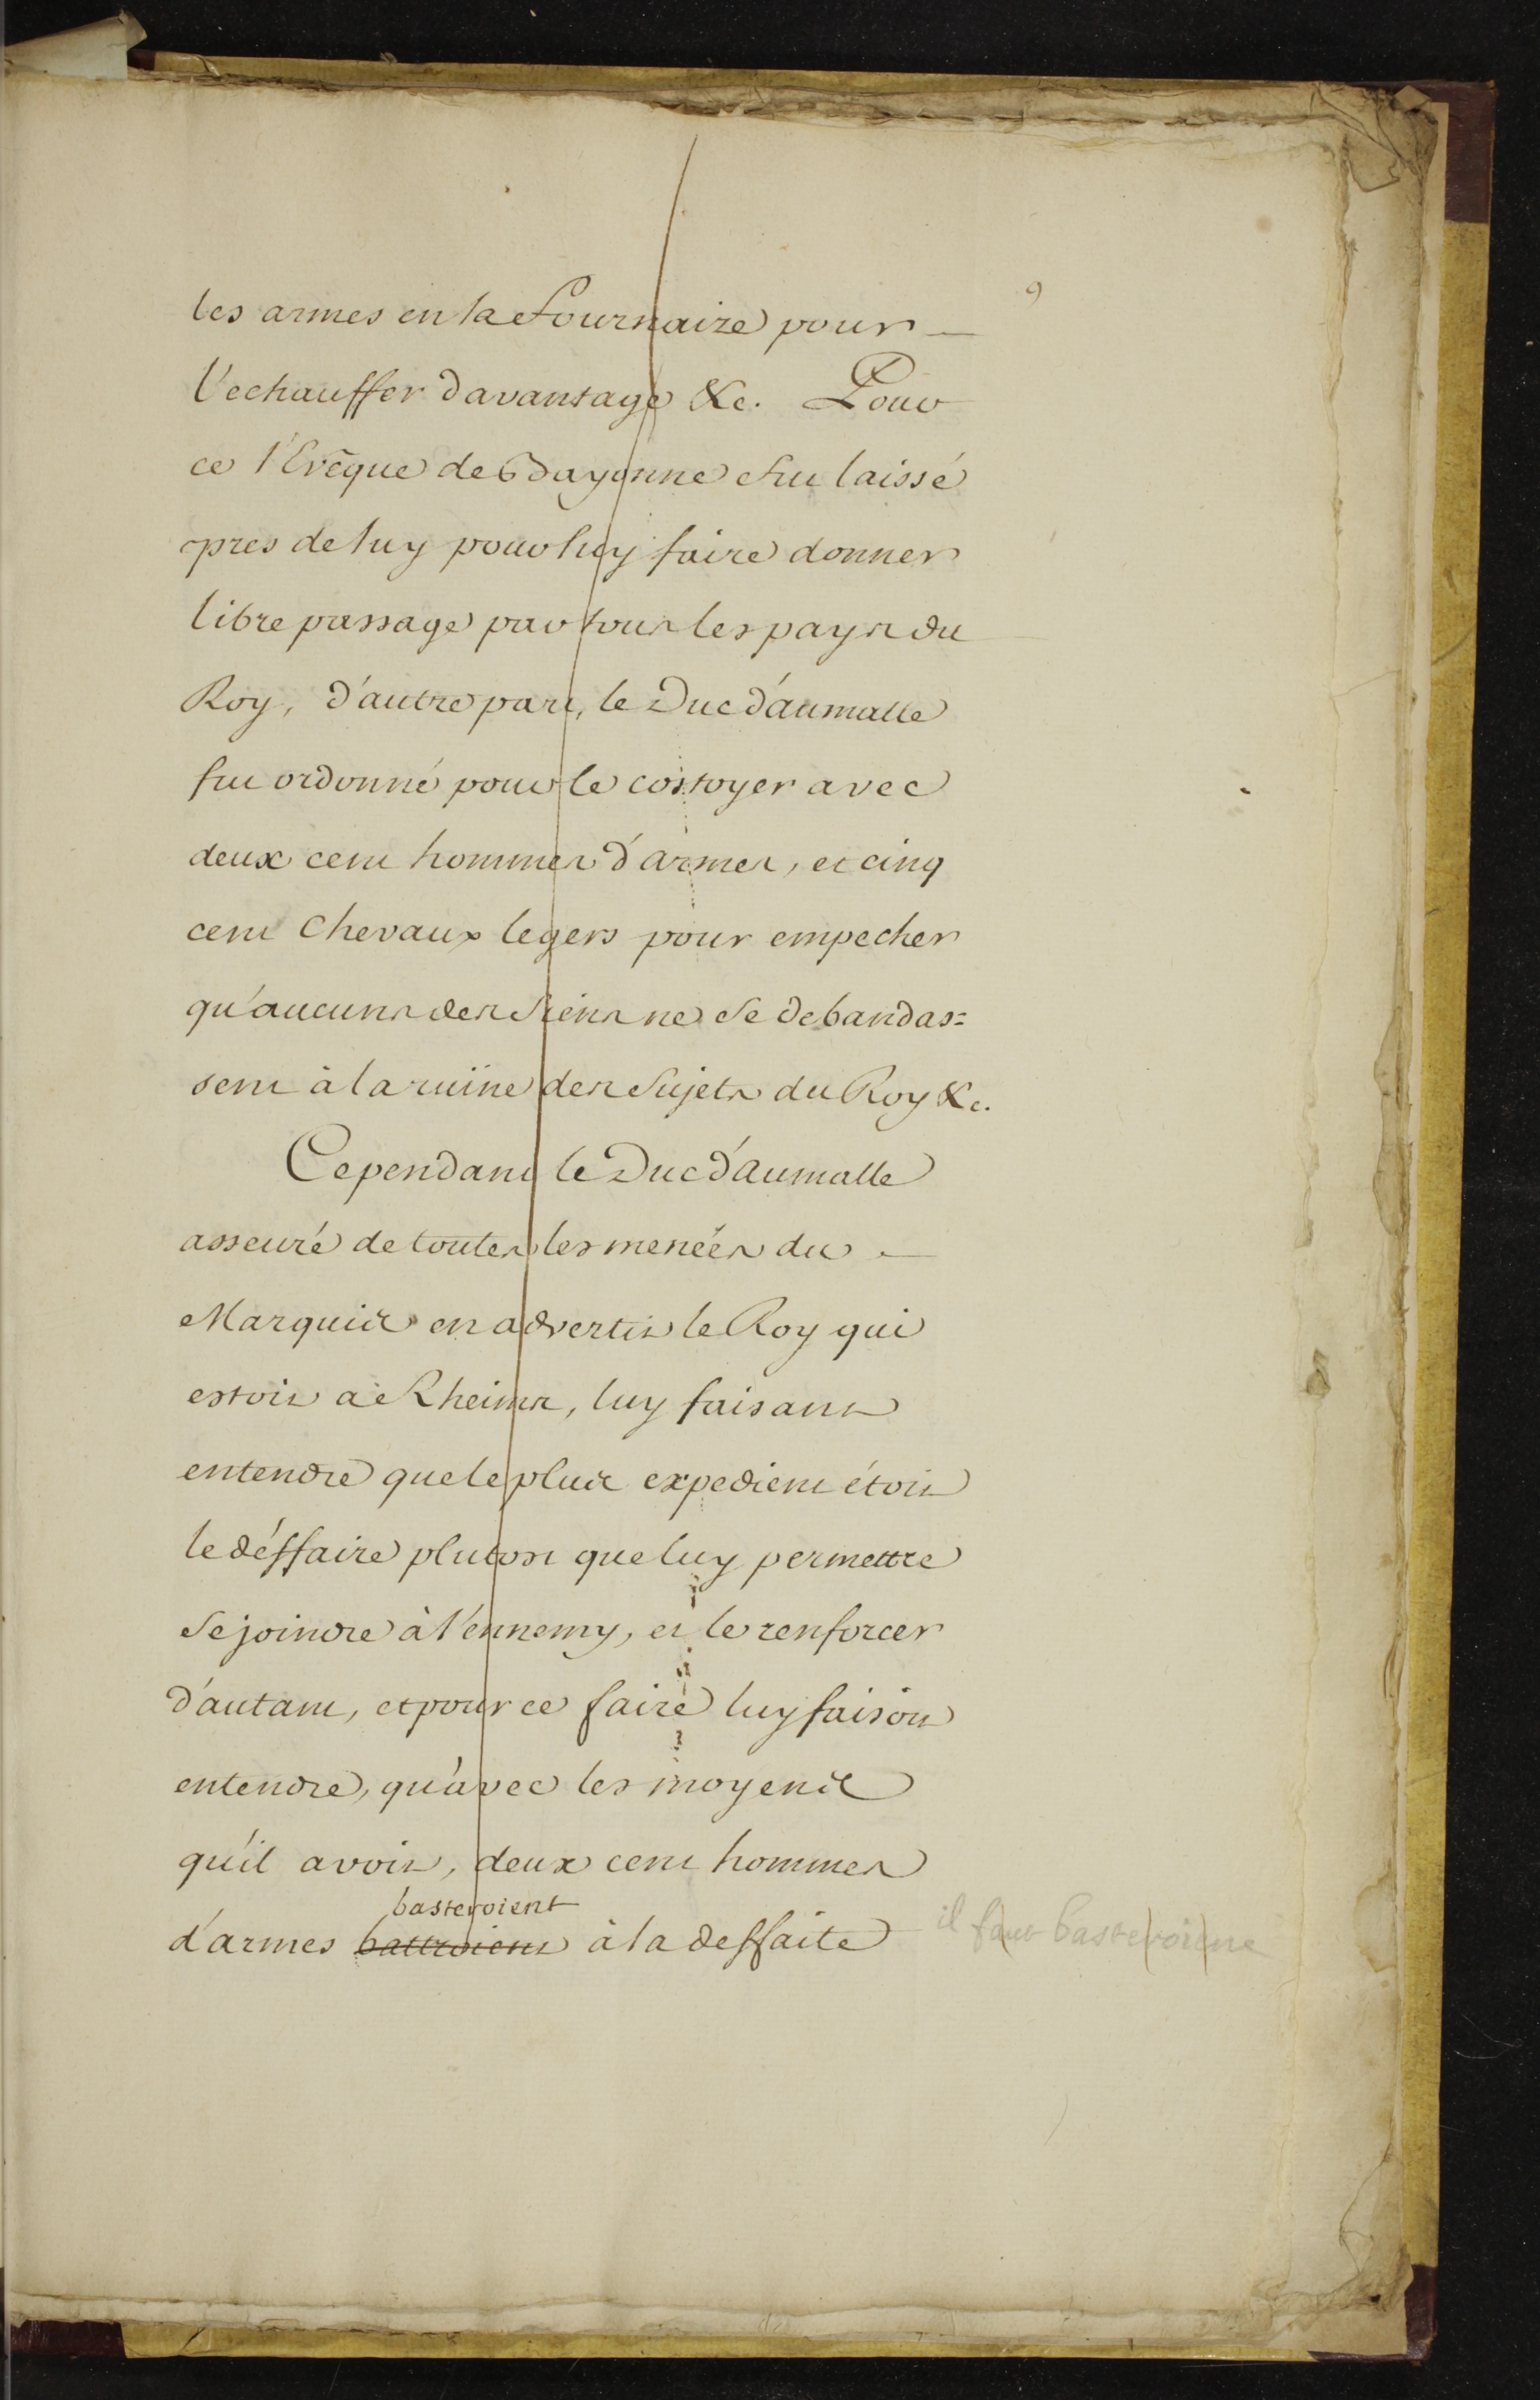 9
les armes en la Fournaize pour
l'echauffer davantage &c. Pour
ce l'Evêque de Bayonne fut laissé
pres de luy pour luy faire donner
libre passage par tous les pays du
Roy, d'autre part, le Duc d'aumalle
fut ordonné pour le costoyer avec
deux cent hommes d'armes, et cinq
cent Chevaux legers pour empecher
qu'aucuns des siens ne se debandas=
sent à la ruïne des sujets du Roy &c.
Cependant le Duc d'aumalle
asseuré de toutes les menées du
Marquis en advertit le Roy qui
estoit a Rheims, luy faisant
entendre que le plus expedient étoit
le déffaire plutost que luy permettre
se joindre à l'ennemy, et le renforcer
d'autant, et pour ce faire luy faisoit
entendre, qu'avec les moyens
qu'il avoit, deux cent hommes
basteroient
d'armes battroient à la deffaite
il faut basteroient